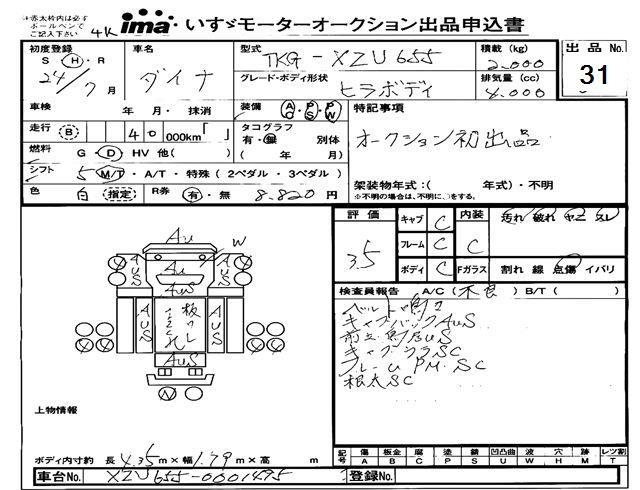 ※赤太枠内は必ず
ボールペンで
ご記入下さい
4K
ima いすゞモーターオークション出品申込書
初度登録
S・H・R
24/7月
車名
ダイナ
型式
TKG-XZU655
グレード・ボディ形状
ヒラボディ
積載 (kg)
2,000
排気量 (cc)
4,000
出品No.
31
車検 年 月・ 抹消
装備 AC・PS・PW
特記事項
オークション初出品
走行 B 40 000km「 」
タコグラフ
有・無 別体
( 年 月)
燃料 G・D・HV 他( )
シフト 5 M/T・A/T・特殊(2ペダル・3ペダル)
色 白 指定
R券 有・無 8.820円
架装物年式:( 年式)・不明
※不明の場合は、不明に○をする。
評価
3.5
キャブ C
フレーム C
ボディ C
内装 C
汚れ 破れ ヤニ スレ
Fガラス 割れ 線 点傷 イバリ
検査員報告 A/C(不良) B/T( )
ベルト鳴り
キャブバックAuS
キャブウラSC
フレームPM.SC
根太SC
AU
W
AUS
Au
AUS
AuS
AUS
AUS
AuS
上物情報
ボディ内寸約 長 4.35m×幅1.79m×高 m
記号
傷 板金 歪 塗 錆 凹凸曲 波 穴 跡 レツ割
A B C P S U W H M T
車台No. XZU655-0001495
登録No.